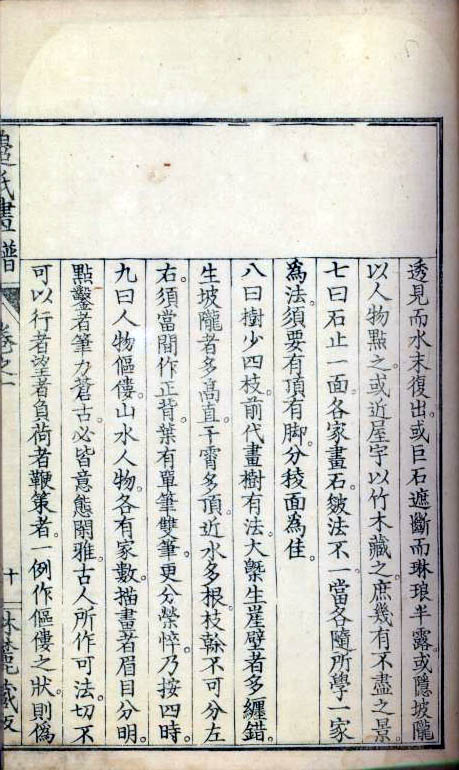 透見而水末復出。或巨石遮斷而琳琅半露。或隱坡隴
以人物點之。或近屋宇以竹木藏之。庶幾有不盡之景
七曰石止一面。各家畫石皴法不一。當各隨所學一家
爲法須要有頂有脚。分稜面爲佳。
八曰樹少四枝。前代畫樹有法。大槩生崖壁者多纏錯。
生坡隴者多高直。干霄多頂。近水多根。枝榦不可分左
右。須當間作正背葉。有單筆雙筆。更分榮悴。乃按四時。
九曰人物傴僂。山水人物。各有家數。描畫者眉目分明。
點鑿者筆力蒼古。必皆意態閑雅。古人所作可法。切不
可以行者望者負荷者鞭策者。一例作傴僂之狀。則僞
氏畫譜
卷之一
十